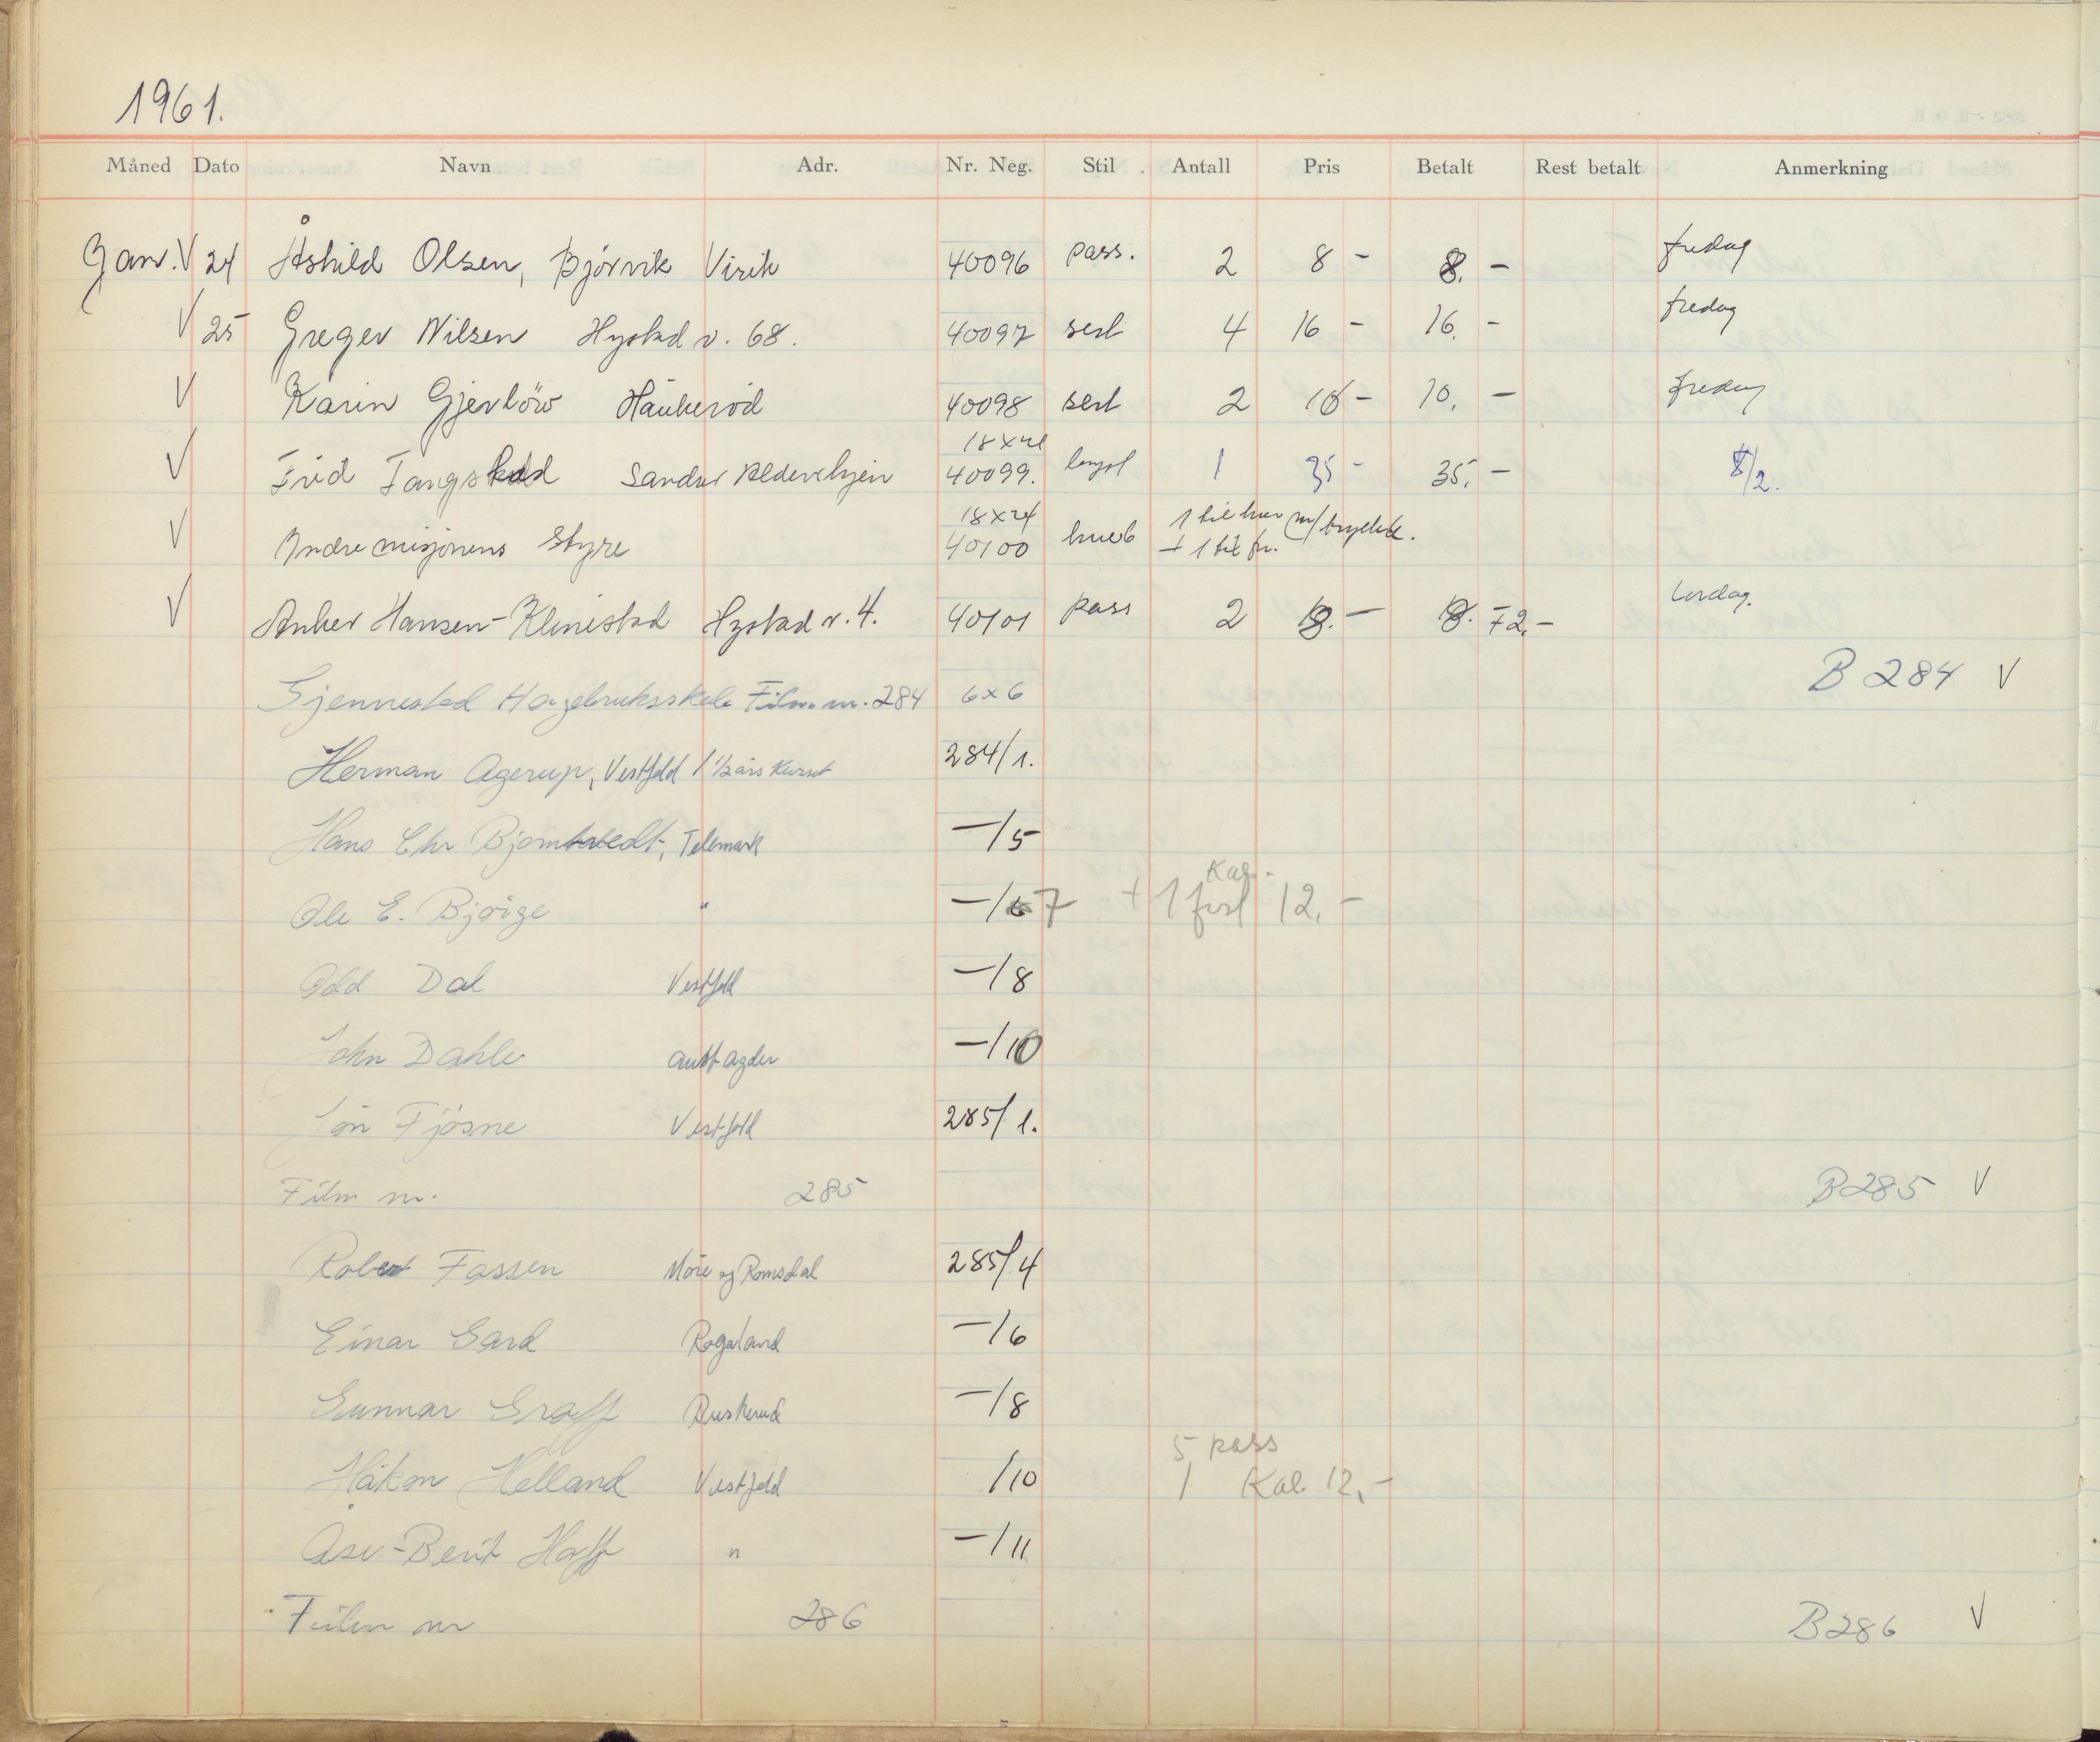 1961.
Måned Dato Navn Adr. Nr. Neg. Stil Antall Pris Betalt Rest betalt Anmerkning
Jan. V 24 Åshild Olsen, Bjørvik Virik 40096 pass. 2 8 - 8. - fredag
V 25 Greger Nilsen Hystad v. 68. 40097 serl 4 16 - 16. - fredag
V Karin Gjerløw Haukerød 40098 serl 2 10 - 10. - fredag
18x24
V Frid Tangstad Sandar Aldershjem 40099. 1 35 - 35,- 8/2.
18x24 1 til hver m/trykk.
V Indremisjonens Styre 40100 + 1 til fr.
V Anker Hansen-Klinestad Hystad v. 4. 40101 pass 2 8.- 8. 72,- Lørdag.
Gjennestad Hagebruksskole Film nr. 284 6x6 B 284 V
Herman Agerup, Vestfold 1 1/2 års kurset 284/1.
Hans Chr Bjorntvedt, Telemark -/5
Kab.
Ole E. Bjørge " -/7 + 1 12,-
Odd Dal Vestfold -/8
John Dahle Aust Agder -/10
Jon Fjøsne Vestfold 285/1.
Film nr. 285 B285 V
Robert Fossen Møre og Romsdal 285/4
Einar Gard Rogaland -/6
Gunnar Graff Buskerud -/8
5 pass
Håkon Helland Vestfold /10 1 Kab. 12,-
Åse-Berit Hoff " -/11
Film nr 286 B286 V